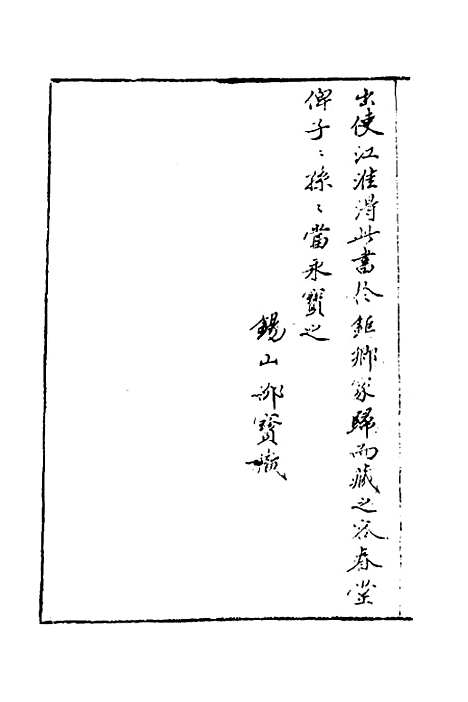 出使江淮得此書於鉅鄉家歸而藏之容春堂
俾子〻孫〻當永寶之
錫山邵寶識